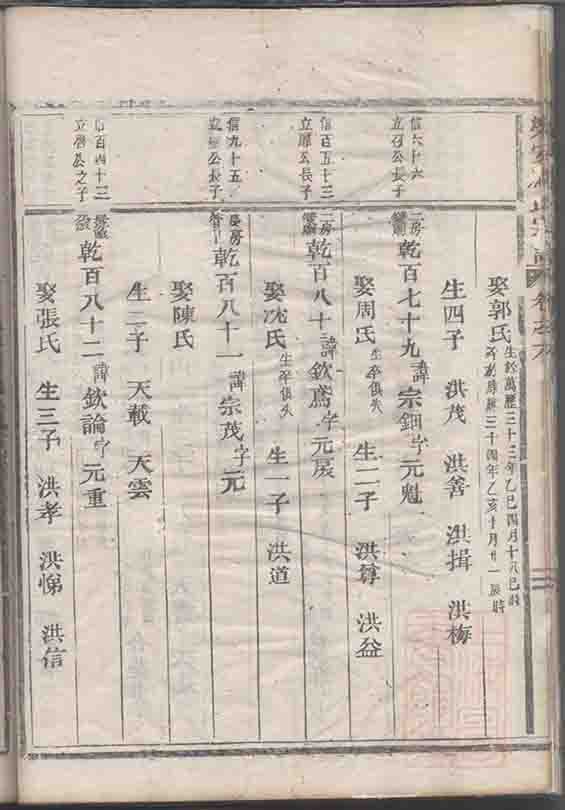 娶郭氏 生於萬曆三十三年乙巳四月十八巳時
康熙三十四年乙亥十月廿一辰時
生四子 洪茂 洪善 洪揖 洪梅
信六十六
立召公長子
二房 乾百七十九 諱宗鈿字元魁
娶周氏 生卒俱失 生二子 洪尊 洪益
信百五十三
公長子
二房 乾百八十 諱欽鳶字元展
娶沈氏 生卒俱失 生一子 洪道
信九十五
公長子
房 乾百八十一 諱宗茂字元
娶陳氏
生二子 天載 天雲
信百四十三
立 公之子
乾百八十二 諱欽論字元重
娶張氏 生三子 洪孝 洪悌 洪信